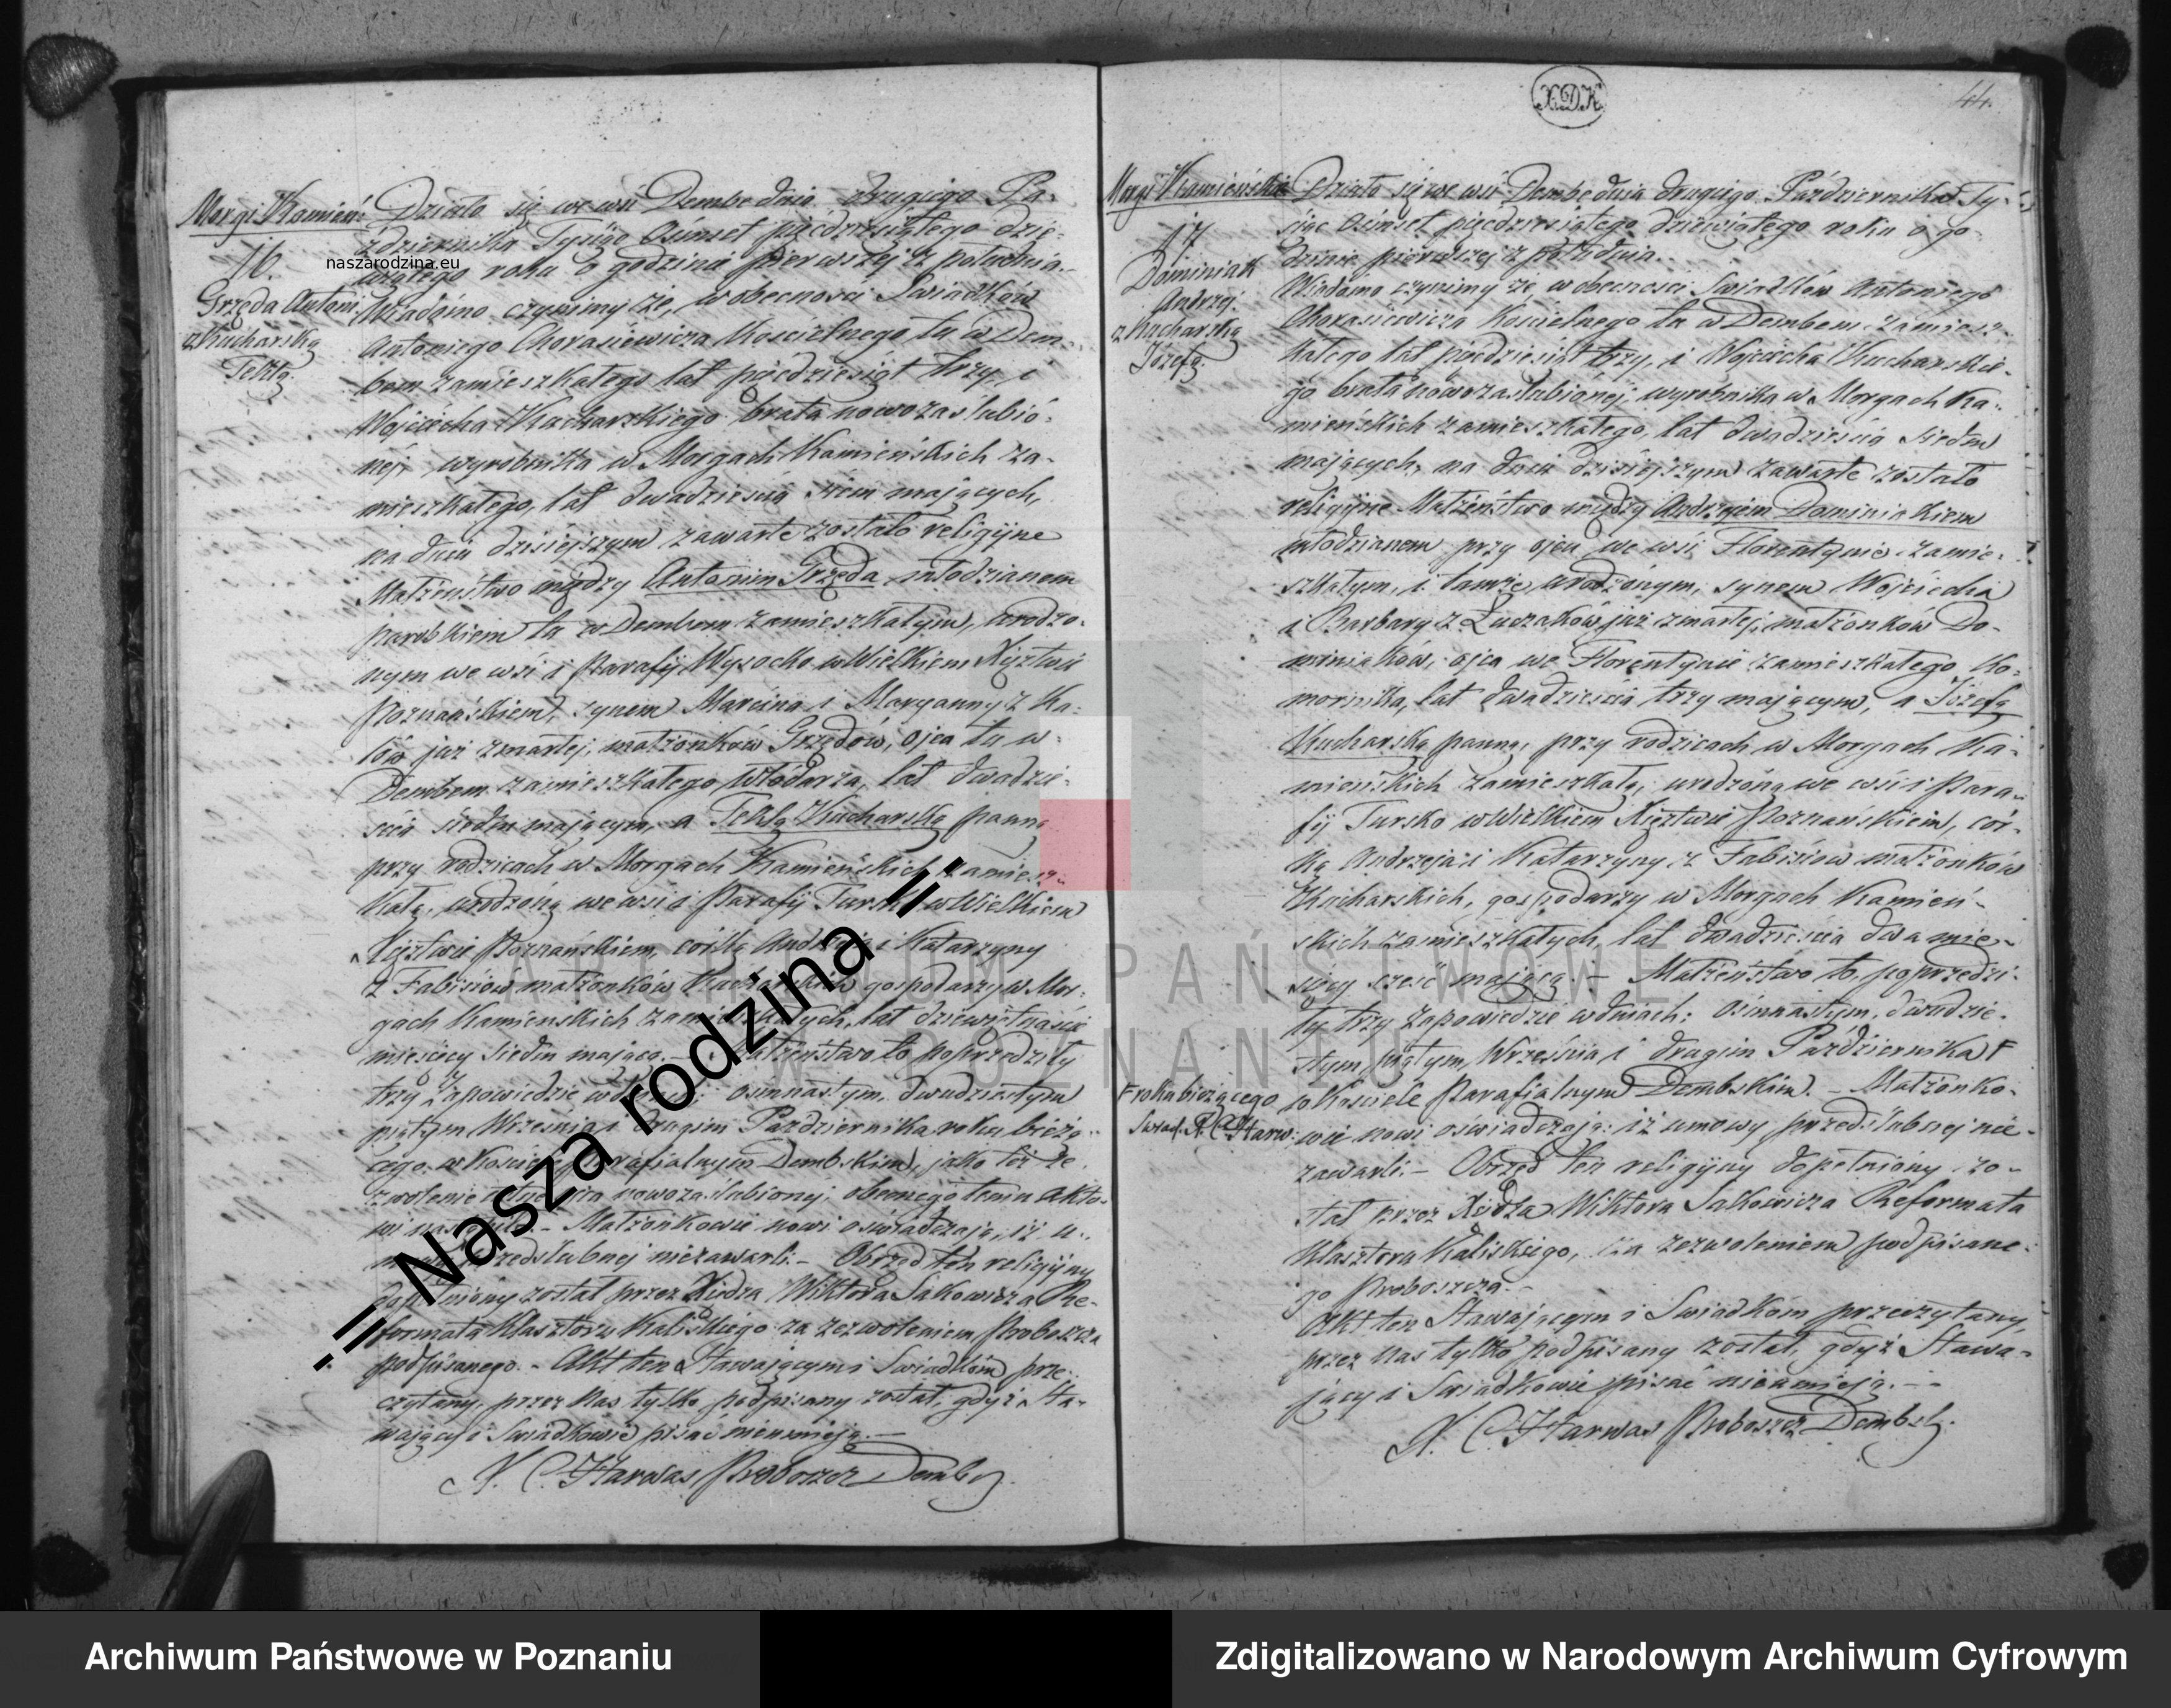 Morgi Kamień:
16.
Grzęda Antoni
z Kucharską
Teklą.
Działo się we wsi Dembe dnia drugiego Pa-
ździernika Tysiąc Ośmset pięćdziesiątego dzie-
wiątego roku o godzinie pierwszej z południa.
Wiadomo czynimy że, w obecności Świadków
Antoniego Chorasiewicza Kościelnego tu w Dem-
bem zamieszkałego lat pięćdziesiąt trzy, i
Wojciecha Kucharskiego brata nowozaślubio-
nej, wyrobnika w Morgach Kamieńskich za-
mieszkałego, lat dwadzieścia siedm mających,
na dniu dzisiejszym zawarte zostało religijne
Małżeństwo między Antonim Grzęda młodzianem
parobkiem tu w Dembem zamieszkałym, urodzo-
nym we wsi i Parafij Wysocko w Wielkiem Xięztwie
Poznańskiem, synem Marcina i Maryanny z Ka-
lów już zmarłej, małżonków Grzędów, ojca tu w
Dembem zamieszkałego Włódarza, lat dwadzie-
ścia siedm mającym, a Teklą Kucharską panną
przy rodzicach w Morgach Kamieńskich zamiesz-
kałą, urodzoną we wsi i Parafij Tursko w Wielkiem
Xięztwie Poznańskiem, córką Andrzeja i Katarzyny
z Fabisiów małżonków Kucharskich gospodarzy w Mor-
gach Kamienskich zamieszkałych, lat dziewiętnaście
miesięcy siedm mającą.- Małżeństwo to poprzedziły
trzy zapowiedzie w dniach: osimnastym, dwudziestym
piątym Września i drugim Października roku bieżą-
cego w Kościele Parafialnym Dembskim, jako też ze-
zwolenie ustne ojca nowozaślubionej, obecnego temu Akto-
wi nastąpiło.- Małżonkowie nowi oświadczają, iż u-
mowy przedślubnej niezawarli.- Obrzęd ten religijny
dopełniony został przez Xiędza Wiktora Sakowicza Re-
formata Klasztoru Kaliskiego za zezwoleniem Proboszcza
podpisanego.- Akt ten Stawającym i Świadkom prze-
czytany, przez Nas tylko podpisany został, gdyż Sta-
wający i Świadkowie pisać nieumieją.-
X. C. Harwas Proboszcz Dembs.
naszarodzina.eu
.:| Nasza rodzina |:.
X.D.K.
44.
Morgi Kamieńskie
17
Dominiak
Andrzej.
z Kucharską
Józefą.
Działo się we wsi Dembe dnia drugiego Października Ty-
siąc Ośmset pięćdziesiątego dziewiątego roku o go-
dzinie pierwszej z południa.
Wiadomo czynimy że w obecności Świadków Antoniego
Chorasiewicza Kościelnego tu w Dembem zamiesz-
kałego lat pięćdziesiąt trzy, i Wojciecha Kucharskie-
go brata nowozaślubionej, wyrobnika w Morgach Ka-
mieńskich zamieszkałego, lat dwadzieścia siedm
mających, na dniu dzisiejszym zawarte zostało
religijne Małżeństwo między Andrzejem Dominiakiem
młodzianem przy ojcu we wsi Florentynie zamie-
szkałym, i tamże urodzonym, synem Wojciecha
i Barbary z Łuczaków już zmarłej, małżonków Do-
miniaków, ojca we Florentynie zamieszkałego Ko-
mornika, lat dwadzieścia trzy mającym, a Józefą
Kucharską panną, przy rodzicach w Morgach Ka-
mieńskich zamieszkałą, urodzoną we wsi i Para-
fij Tursko w Wielkiem Xięztwie Poznańskiem, cór-
ką Andrzeja i Katarzyny z Fabisiów małżonków
Kucharskich, gospodarzy w Morgach Kamień-
skich zamieszkałych, lat dwadzieścia dwa mie-
sięcy sześć mającą.- Małżeństwo to poprzedzi-
ły trzy zapowiedzie w dniach: osimnastym, dwudzie-
stym piątym, Września i drugim Października F
F roku bieżącego
Świad. X C Harw:
w Kościele Parafialnym Dembskim.- Małżonko-
wie nowi oświadczają: iż umowy przedślubnej nie-
zawarli.- Obrzęd ten religijny dopełniony zo-
stał przez Xiędza Wiktora Sakowicza Reformata
Klasztoru Kaliskiego, za zezwoleniem podpisane-
go Proboszcza.-
Akt ten Stawającym i Świadkom przeczytany,
przez Nas tylko podpisany został, gdyż Stawa-
jący i Świadkowie pisać nieumieją.-
X. C. Harwas Proboszcz Dembs.
ARCHIWUM PAŃSTWOWE
W POZNANIU
Archiwum Państwowe w Poznaniu
Zdigitalizowano w Narodowym Archiwum Cyfrowym